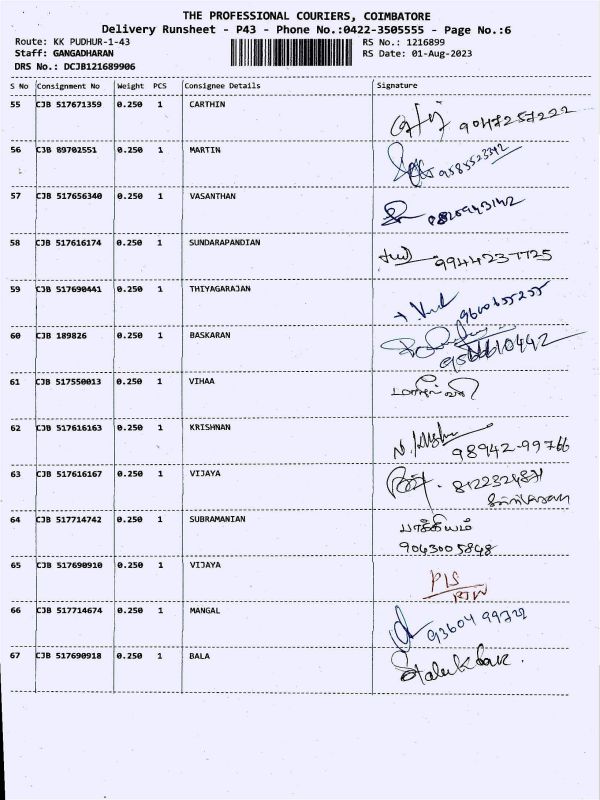 THE PROFESSIONAL COURIERS, COIMBATORE
Delivery Runsheet - P43 - Phone No.:0422-3505555 - Page No.:6
Route: KK PUDHUR-1-43 RS No.: 1216899
Staff: GANGADHARAN RS Date: 01-Aug-2023
DRS No.: DCJB121689906
S No Consignment No Weight PCS Consignee Details Signature
55 CJB 517671359 0.250 1 CARTHIN 9047257222
56 CJB 89702551 0.250 1 MARTIN
57 CJB 517656340 0.250 1 VASANTHAN
58 CJB 517616174 0.250 1 SUNDARAPANDIAN 9944237725
59 CJB 517690441 0.250 1 THIYAGARAJAN 9600655255
60 CJB 189826 0.250 1 BASKARAN
61 CJB 517550013 0.250 1 VIHAA
62 CJB 517616163 0.250 1 KRISHNAN 98942-99766
63 CJB 517616167 0.250 1 VIJAYA
64 CJB 517714742 0.250 1 SUBRAMANIAN பாக்கியம்
9043005848
65 CJB 517690910 0.250 1 VIJAYA
66 CJB 517714674 0.250 1 MANGAL
67 CJB 517690918 0.250 1 BALA